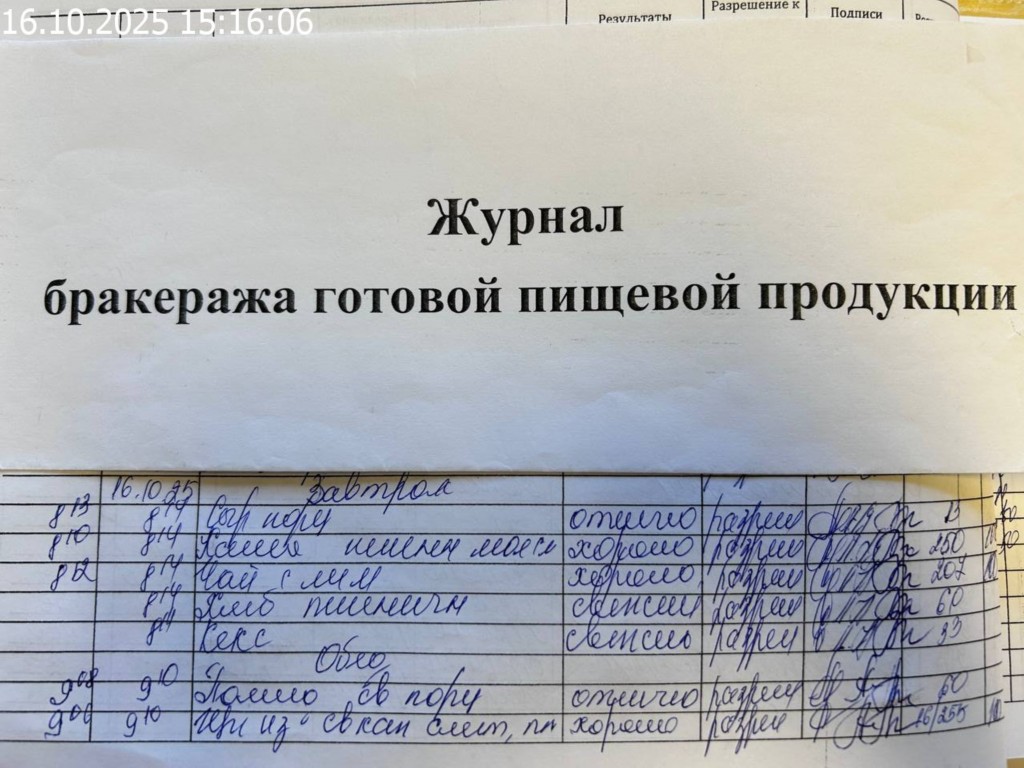 16.10.2025 15:16:06
Результаты Разрешение к Подписи
Журнал
бракеража готовой пищевой продукции
16.10.25 Завтрак
8 13 Сыр порц отлично разреш 13
8 10 8 14 хорошо разреш 250
8 12 8 14 Чай с лим хорошо разреш 207
8 14 Хлеб пшеничн свежий разреш 60
Кекс разреш
Обед
9 08 9 10 св порц отлично разреш 60
9 00 9 10 Щи из св кап смет, хорошо разреш /255